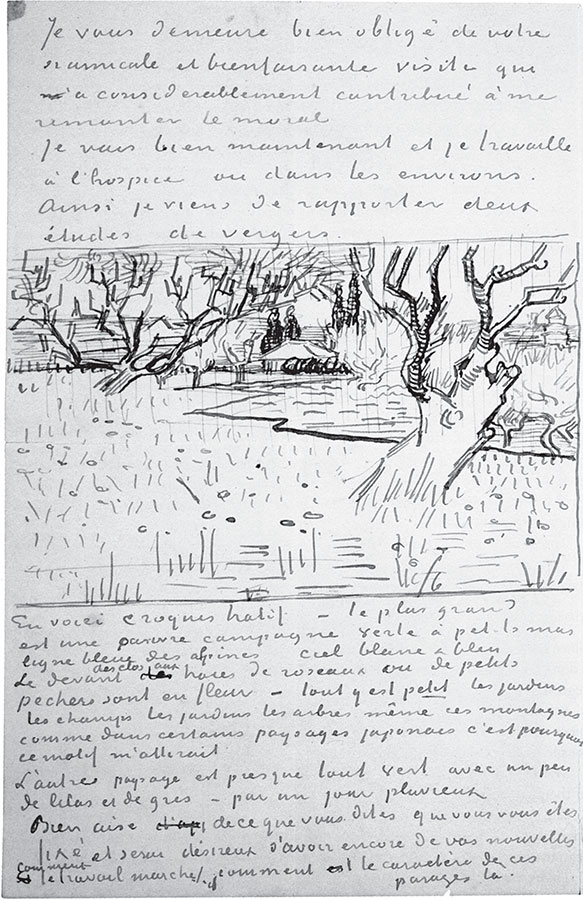 Je vous demeure bien obligé de votre
si amicale et bienfaisante visite qui
m'a considerablement contribué à me
remonter le moral
Je vais bien maintenant et je travaille
à l'hospice ou dans les environs.
Ainsi je viens de rapporter deux
études de vergers.
En voici croquis hatif – le plus grand
est une pauvre campagne verte à petits mas
ligne bleue des alpines ciel blanc & bleu
Le devant des clos aux haies de roseaux où de petits
pechers sont en fleur – tout y est petit les jardins
les champs les jardins les arbres même ces montagnes
comme dans certains paysages japonais c'est pourquoi
ce motif m'attirait.
L'autre paysage est presque tout vert avec un peu
de lilas et de gris – par un jour pluvieux
Bien aise de ce que vous dites que vous vous êtes
fixé et serai desireux d'avoir encore de vos nouvelles
comment le travail marche, comment est le caractère de ces
parages là.